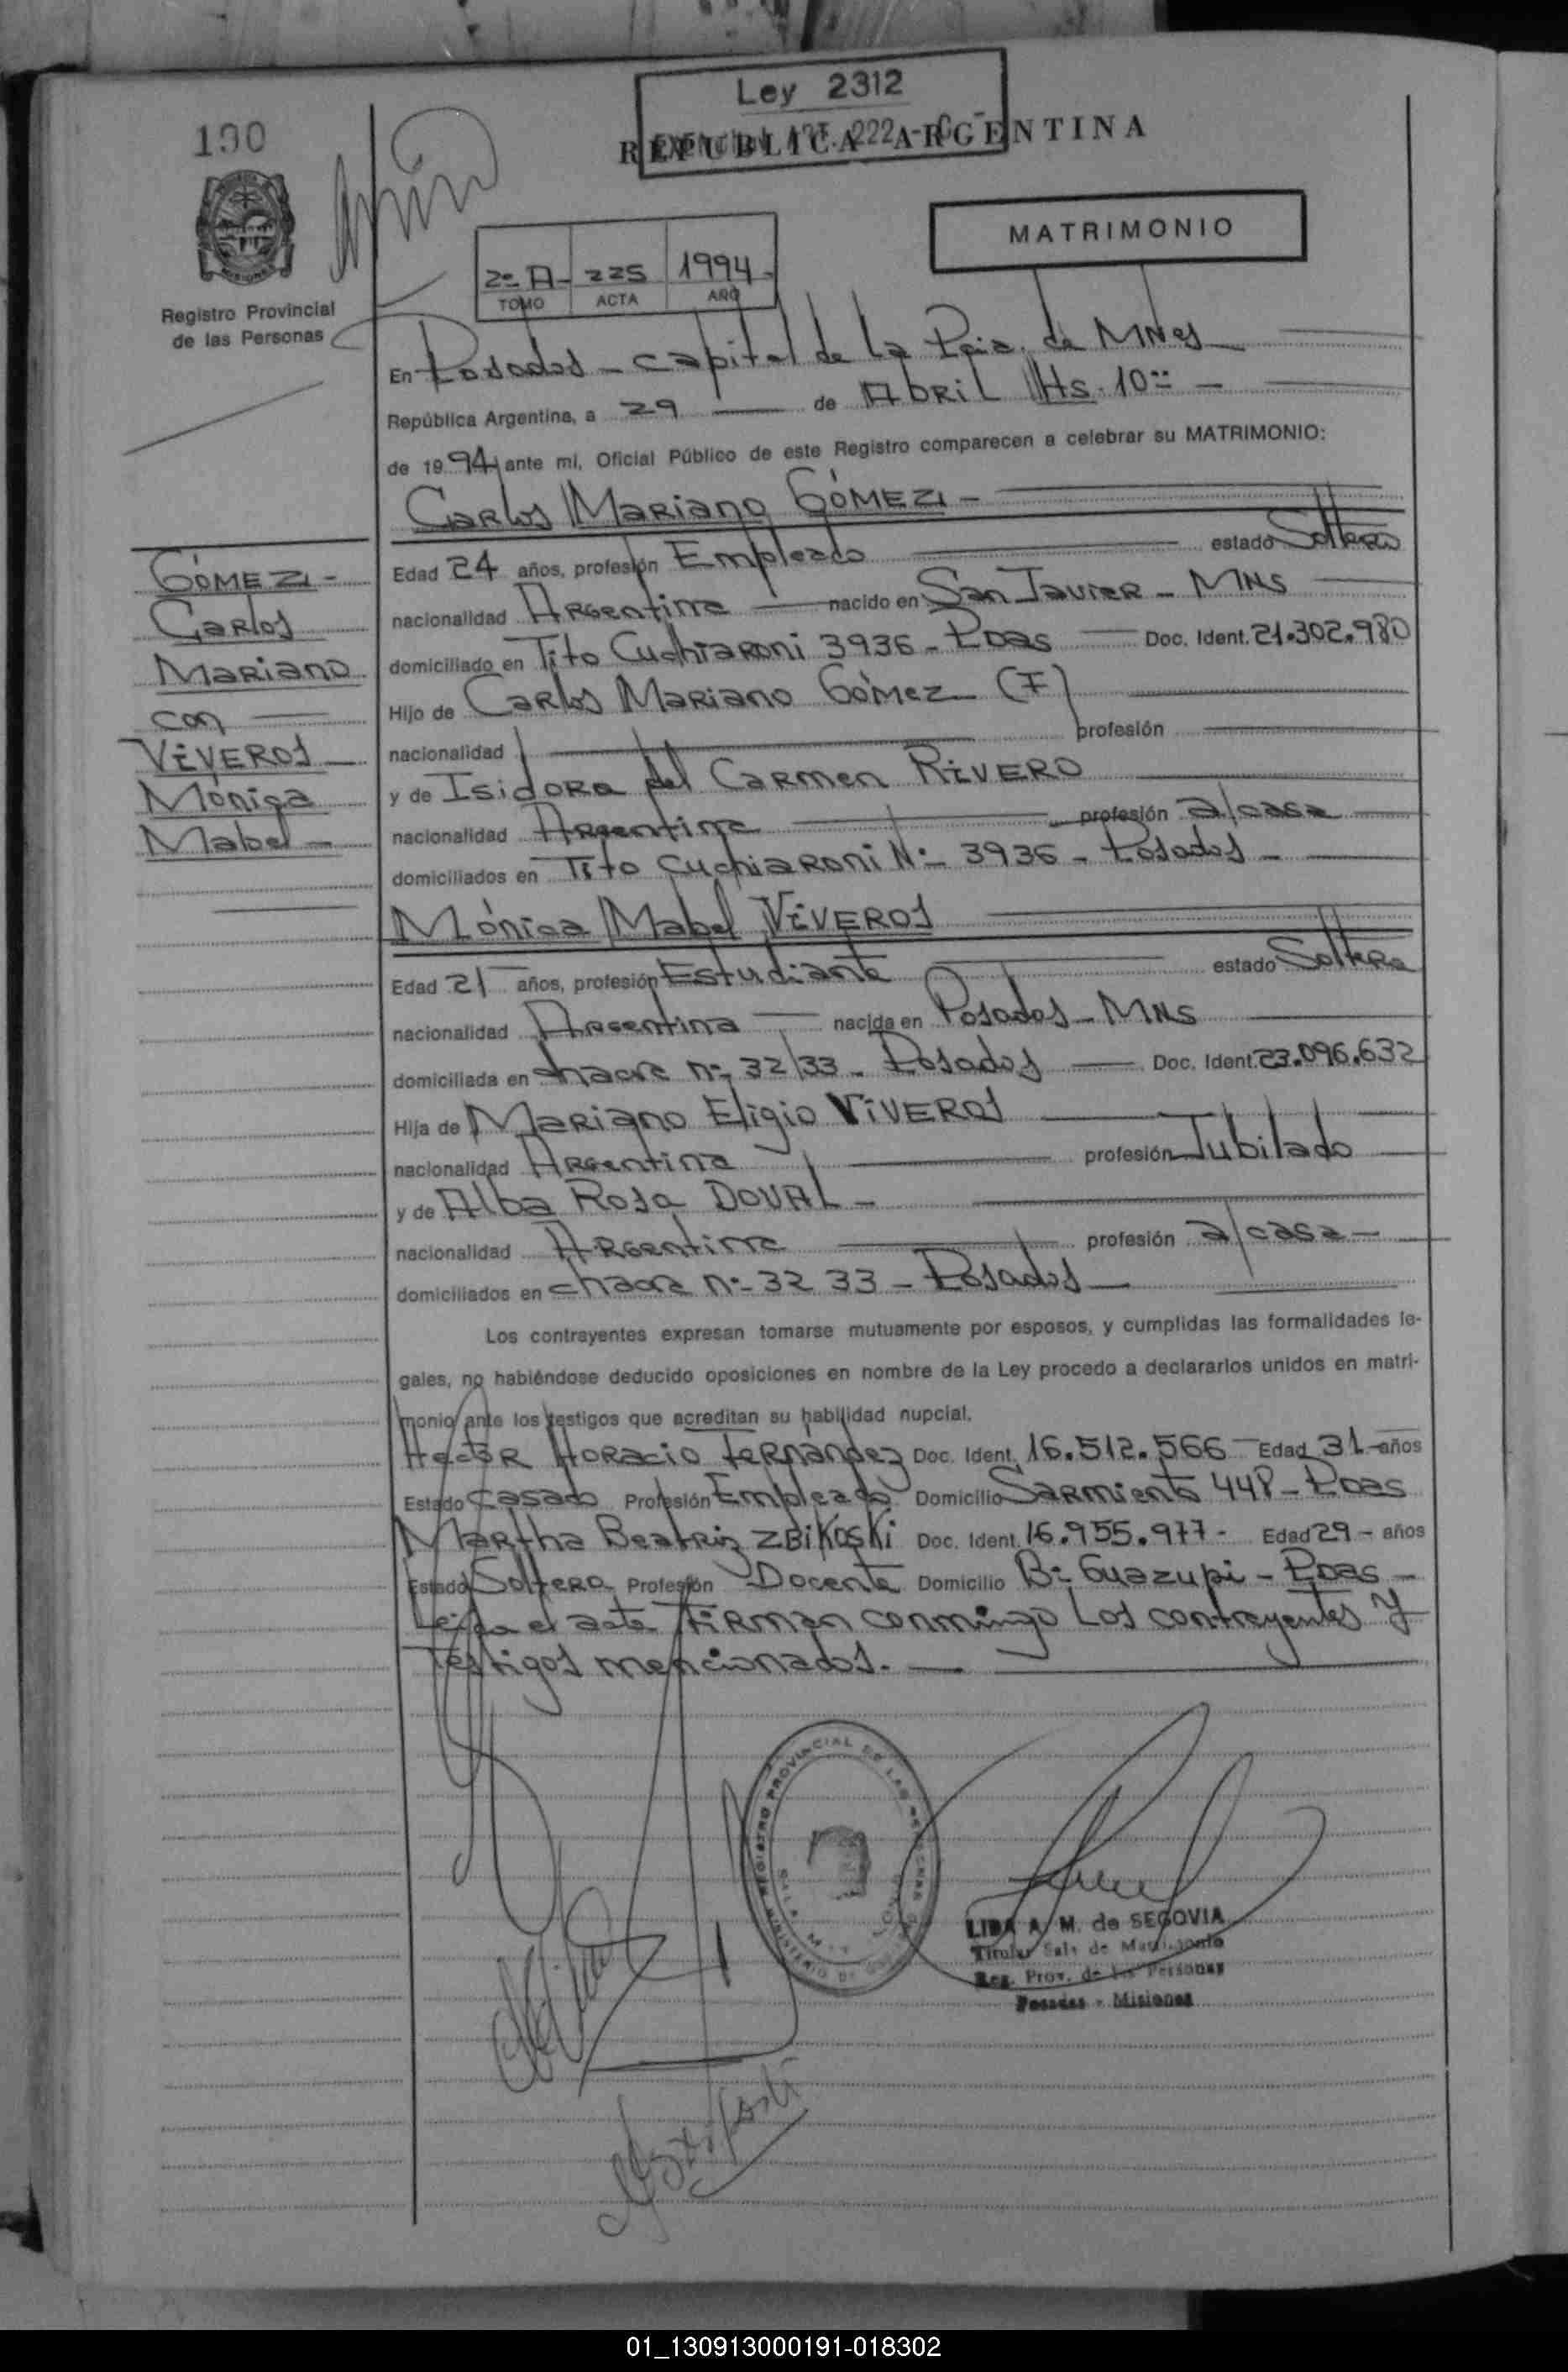 Ley 2312
190
REPUBLICA ARGENTINA
MATRIMONIO
2º A - 225 1994 -
TOMO ACTA AÑO
Registro Provincial
de las Personas
En Posadas - Capital de la Pcia. de MNes
República Argentina, a 29 de Abril Hs. 10
de 1994 ante mi, Oficial Público de este Registro comparecen a celebrar su MATRIMONIO:
Carlos Mariano GÓMEZ -
Edad 24 años, profesión Empleado estado Soltero
nacionalidad Argentina nacido en San Javier - MNS
domiciliado en Tito Cuchiaroni 3936 - Pdas Doc. Ident. 21.302.980
Hijo de Carlos Mariano Gómez (F)
nacionalidad profesión
y de Isidora del Carmen RIVERO
nacionalidad Argentina profesión a/casa
domiciliados en Tito Cuchiaroni Nº 3936 - Posadas -
GÓMEZ -
Carlos
Mariano
con
VIVEROS
Mónica
Mabel -
Mónica Mabel VIVEROS
Edad 21 años, profesión Estudiante estado Soltera
nacionalidad Argentina nacida en Posadas - MNS
domiciliada en chacra nº 32/33 - Posadas Doc. Ident. 23.096.632
Hija de Mariano Eligio VIVEROS
nacionalidad Argentina profesión Jubilado
y de Alba Rosa DOVAL -
nacionalidad Argentina profesión a/casa -
domiciliados en chacra nº 32 33 - Posadas
Los contrayentes expresan tomarse mutuamente por esposos, y cumplidas las formalidades le-
gales, no habiéndose deducido oposiciones en nombre de la Ley procedo a declararlos unidos en matri-
monio ante los testigos que acreditan su habilidad nupcial.
Hector Horacio Fernández Doc. Ident. 16.512.566 Edad 31 años
Estado Casado Profesión Empleado Domicilio Sarmiento 448 - Pdas
Martha Beatriz ZBIKOSKI Doc. Ident. 16.955.977 - Edad 29 - años
Estado Soltera Profesión Docente Domicilio Bº Guazupi - Pdas -
Leida el acta firman conmingo los contrayentes y
Testigos mencionados.
REGISTRO PROVINCIAL DE LAS PERSONAS
LIDA A. M. de SEGOVIA
Titular Sala de Matrimonio
Reg. Prov. de las Personas
Posadas - Misiones
01_130913000191-018302